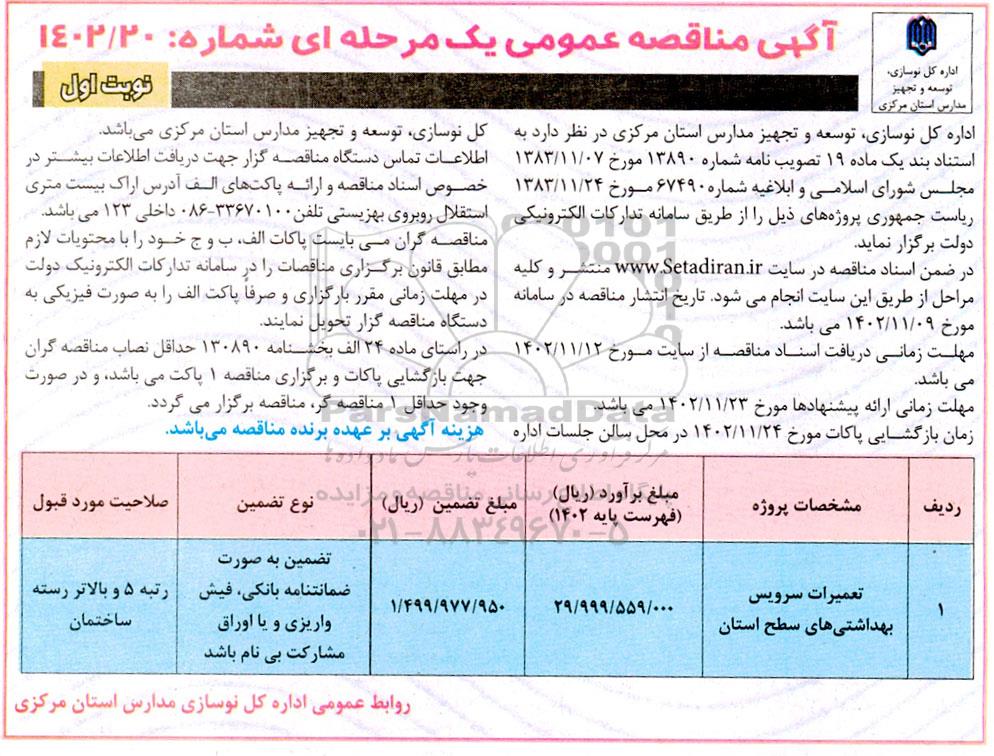 آگهی مناقصه عمومی یک مرحله ای شماره: ۱۴۰۲/۲۰
اداره کل نوسازی،
توسعه و تجهیز
مدارس استان مرکزی
نوبت اول
اداره کل نوسازی، توسعه و تجهیز مدارس استان مرکزی در نظر دارد به
استناد بند یک ماده ۱۹ تصویب نامه شماره ۱۳۸۹۰ مورخ ۱۳۸۳/۱۱/۰۷
مجلس شورای اسلامی و ابلاغیه شماره ۶۷۴۹۰ مورخ ۱۳۸۳/۱۱/۲۴
ریاست جمهوری پروژه‌های ذیل را از طریق سامانه تدارکات الکترونیکی
دولت برگزار نماید.
در ضمن اسناد مناقصه در سایت www.Setadiran.ir منتشر و کلیه
مراحل از طریق این سایت انجام می شود. تاریخ انتشار مناقصه در سامانه
مورخ ۱۴۰۲/۱۱/۰۹ می باشد.
مهلت زمانی دریافت اسناد مناقصه از سایت مورخ ۱۴۰۲/۱۱/۱۲
می باشد.
مهلت زمانی ارائه پیشنهادها مورخ ۱۴۰۲/۱۱/۲۳ می باشد.
زمان بازگشایی پاکات مورخ ۱۴۰۲/۱۱/۲۴ در محل سالن جلسات اداره
کل نوسازی، توسعه و تجهیز مدارس استان مرکزی می‌باشد.
اطلاعات تماس دستگاه مناقصه گزار جهت دریافت اطلاعات بیشتر در
خصوص اسناد مناقصه و ارائه پاکت‌های الف آدرس اراک بیست متری
استقلال روبروی بهزیستی تلفن ۳۳۶۷۰۱۰۰-۰۸۶ داخلی ۱۲۳ می باشد.
مناقصه گران می بایست پاکات الف، ب و ج خود را با محتویات لازم
مطابق قانون برگزاری مناقصات را در سامانه تدارکات الکترونیک دولت
در مهلت زمانی مقرر بارگزاری و صرفاً پاکت الف را به صورت فیزیکی به
دستگاه مناقصه گزار تحویل نمایند.
در راستای ماده ۲۴ الف بخشنامه ۱۳۰۸۹۰ حداقل نصاب مناقصه گران
جهت بازگشایی پاکات و برگزاری مناقصه ۱ پاکت می باشد، و در صورت
وجود حداقل ۱ مناقصه گر، مناقصه برگزار می گردد.
هزینه آگهی بر عهده برنده مناقصه می‌باشد.
ParsNamadData
مرکز فرآوری اطلاعات پارس نماد داده ها
پایگاه اطلاع رسانی مناقصه و مزایده
۰۲۱-۸۸۳۴۹۶۷۰-۵
ردیف
مشخصات پروژه
مبلغ برآورد (ریال)
(فهرست پایه ۱۴۰۲)
مبلغ تضمین (ریال)
نوع تضمین
صلاحیت مورد قبول
۱
تعمیرات سرویس
بهداشتی‌های سطح استان
۲۹/۹۹۹/۵۵۹/۰۰۰
۱/۴۹۹/۹۷۷/۹۵۰
تضمین به صورت
ضمانتنامه بانکی، فیش
واریزی و یا اوراق
مشارکت بی نام باشد
رتبه ۵ و بالاتر رسته
ساختمان
روابط عمومی اداره کل نوسازی مدارس استان مرکزی